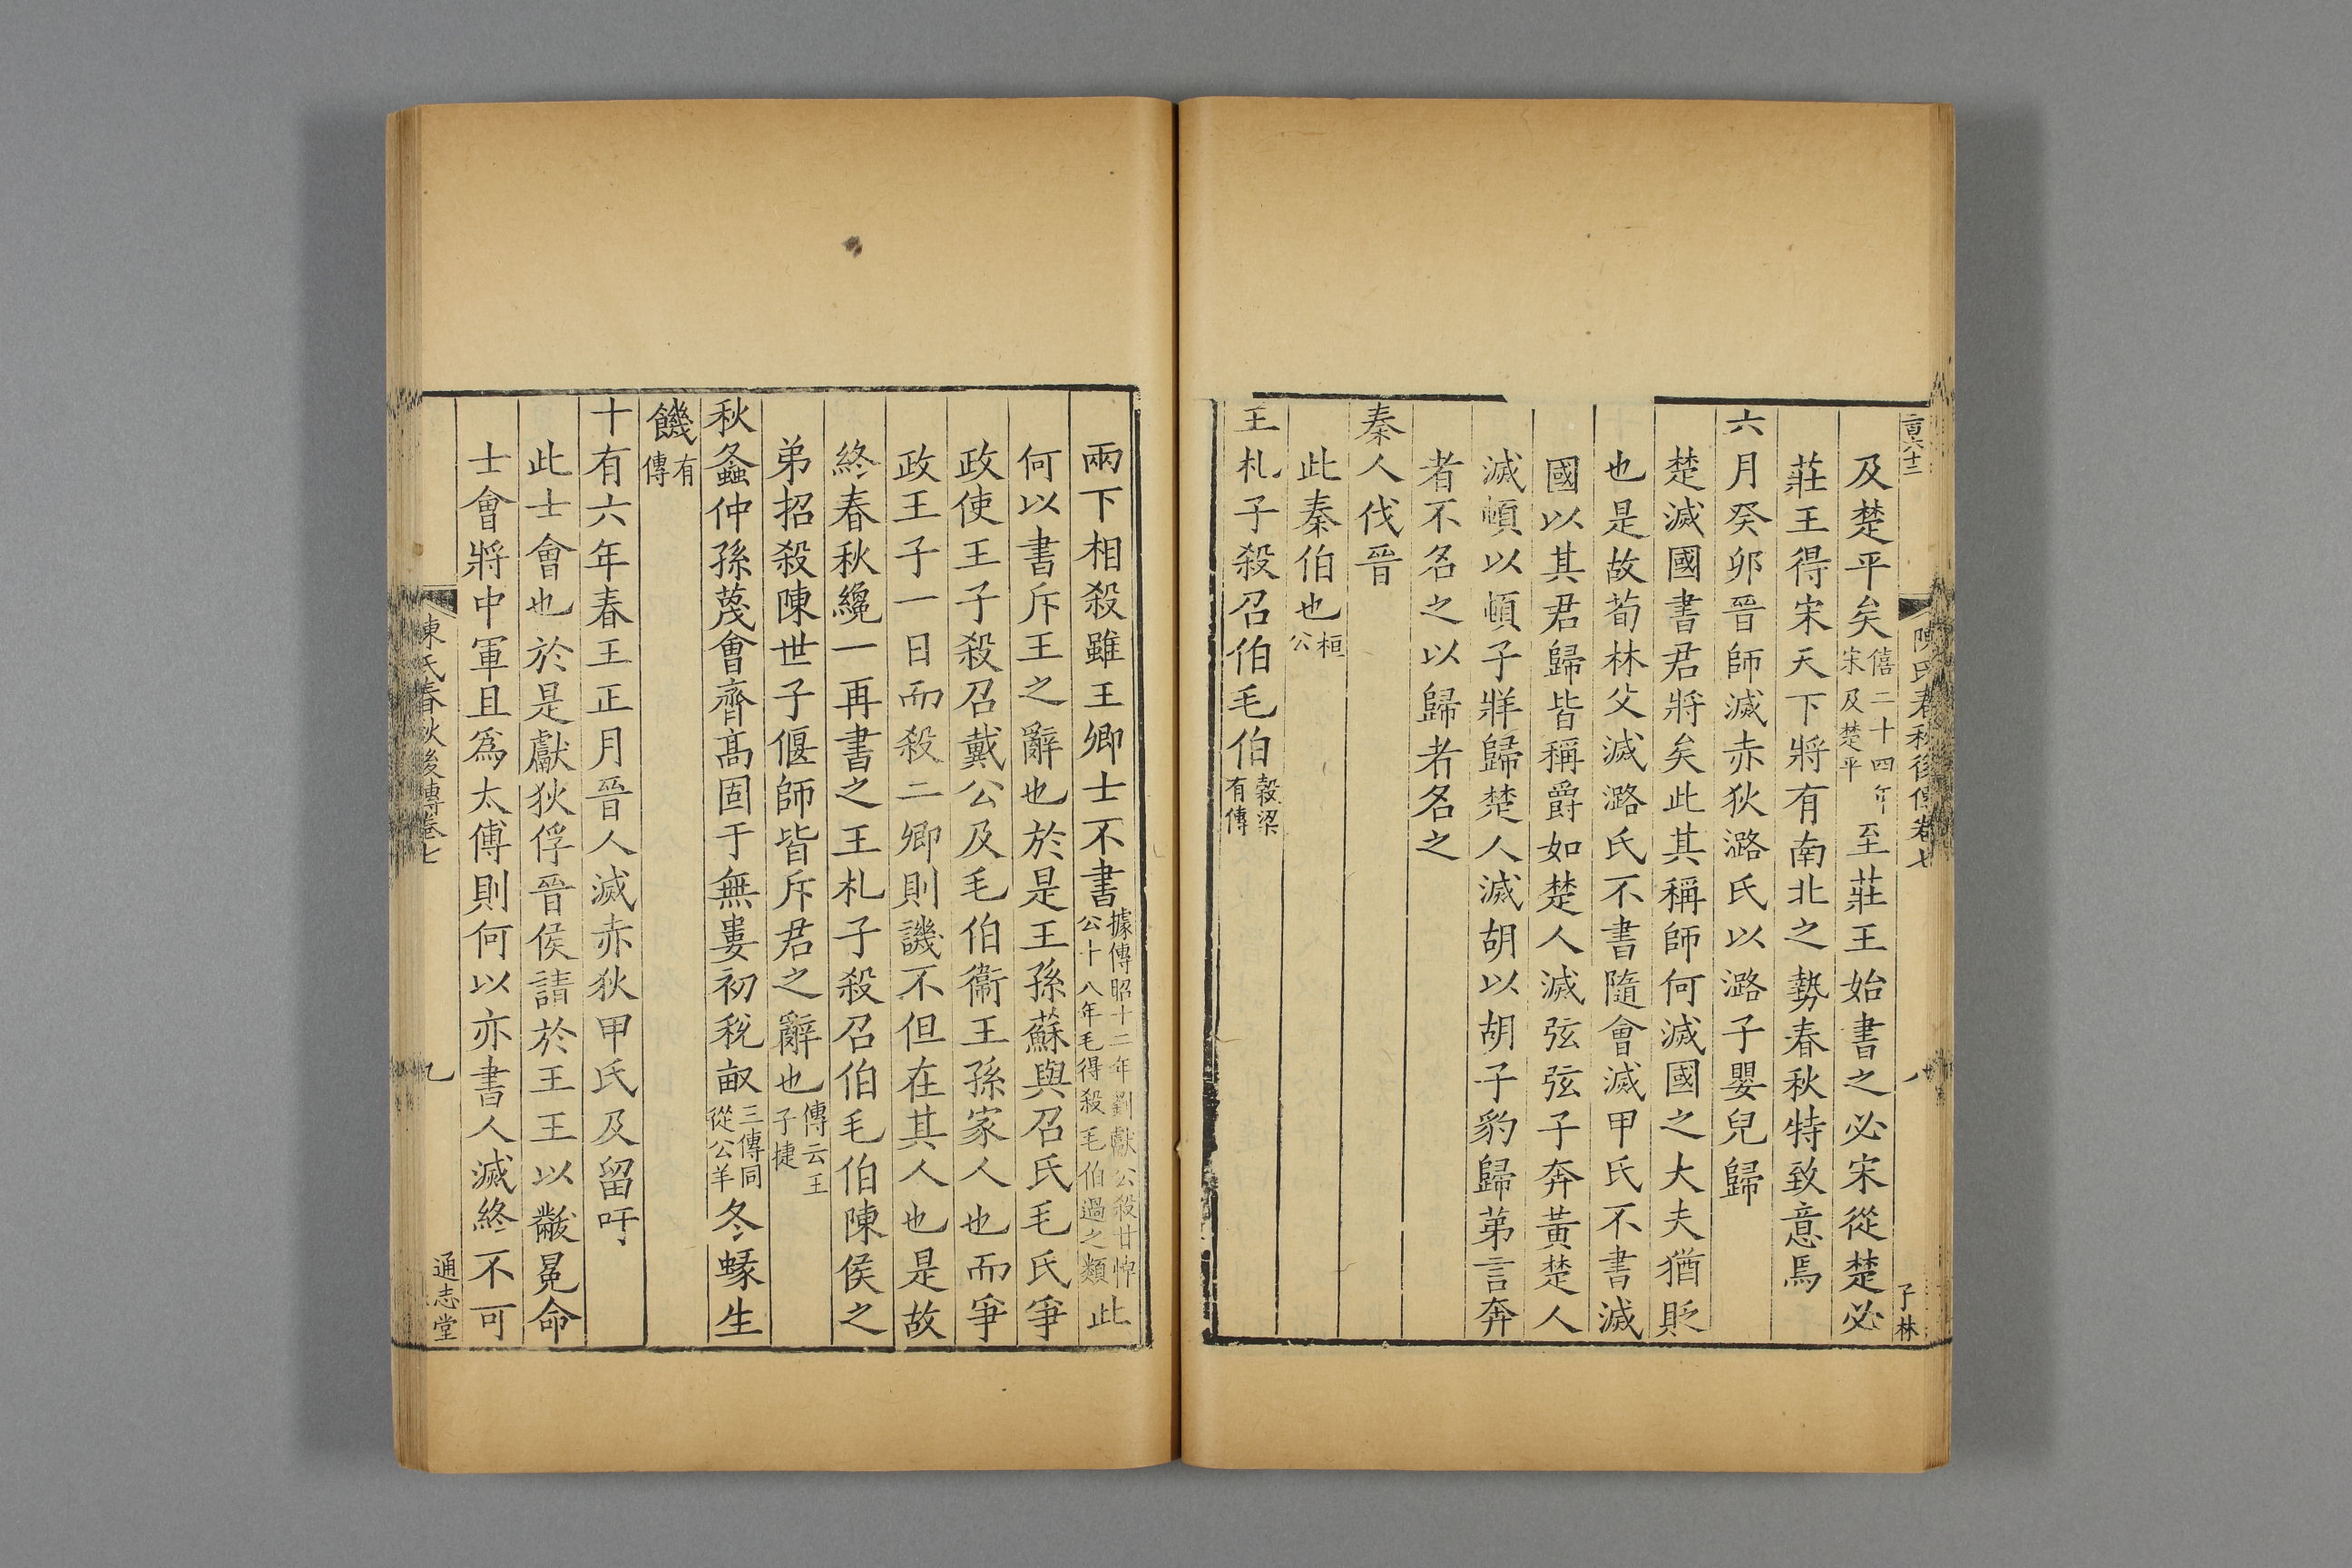 陳氏春秋後傳卷七
八
子林
及楚平矣僖二十四年宋及楚平至莊王始書之必宋從楚必
莊王得宋天下將有南北之勢春秋特致意焉
六月癸卯晉師滅赤狄潞氏以潞子嬰兒歸
楚滅國書君將矣此其稱師何滅國之大夫猶貶
也是故荀林父滅潞氏不書隨會滅甲氏不書滅
國以其君歸皆稱爵如楚人滅弦弦子奔黃楚人
滅頓以頓子牂歸楚人滅胡以胡子豹歸苐言奔
者不名之以歸者名之
秦人伐晉
此秦伯也桓公
王札子殺召伯毛伯穀梁有傳
兩下相殺雖王卿士不書據傳昭十二年劉獻公殺甘悼公十八年毛得殺毛伯過之類此
何以書斥王之辭也於是王孫蘇與召氏毛氏爭
政使王子殺召戴公及毛伯衞王孫家人也而爭
政王子一日而殺二卿則譏不但在其人也是故
終春秋纔一再書之王札子殺召伯毛伯陳侯之
弟招殺陳世子偃師皆斥君之辭也傳云王子捷
秋螽仲孫蔑會齊高固于無婁初稅畝三傳同從公羊冬蝝生
饑有傳
十有六年春王正月晉人滅赤狄甲氏及留吁
此士會也於是獻狄俘晉侯請於王王以黻冕命
士會將中軍且爲太傅則何以亦書人滅終不可
陳氏春秋後傳卷七
九
通志堂